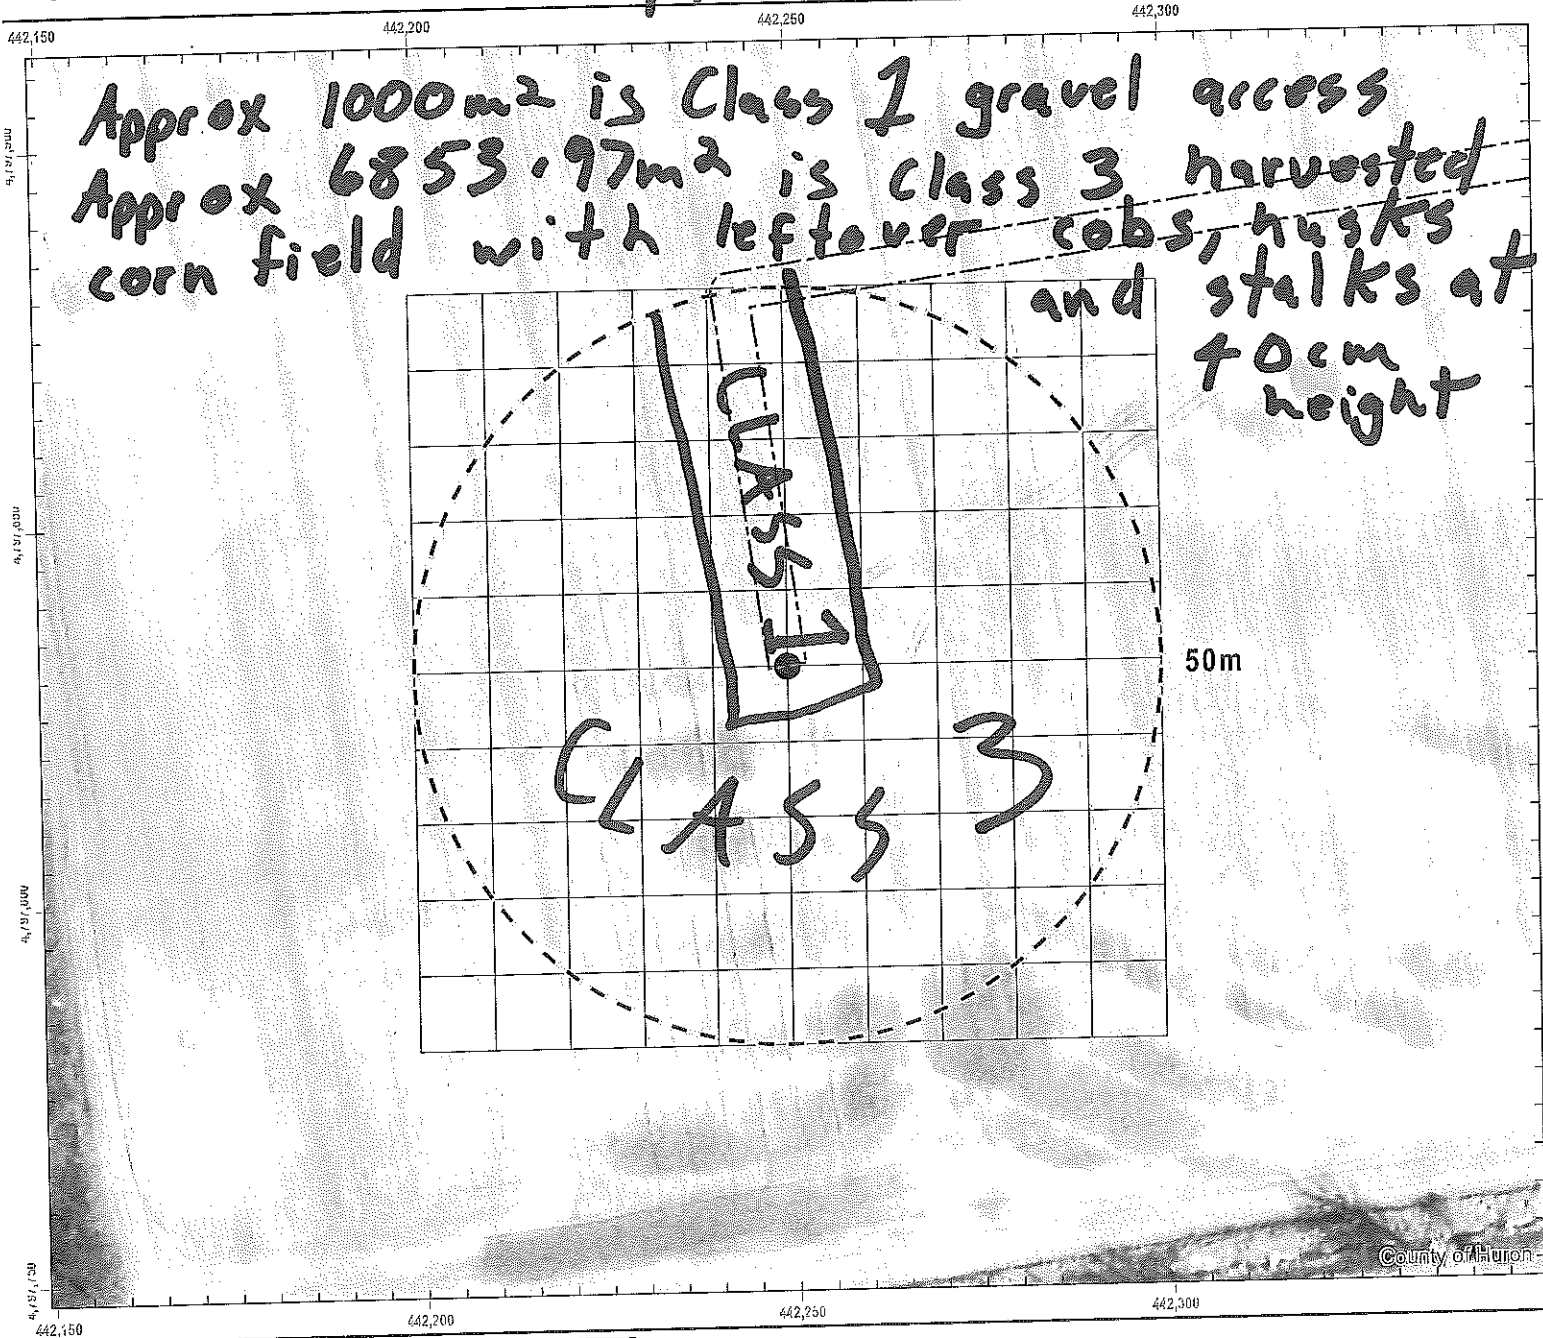 442,150 442,200 442,250 442,300
Approx 1000m² is Class 1 gravel access
Approx 6853.97m² is class 3 harvested
corn field with leftover cobs, husks
and stalks at
40cm
height
CLASS 1
50m
CLASS 3
County of Huron
442,150 442,200 442,250 442,300